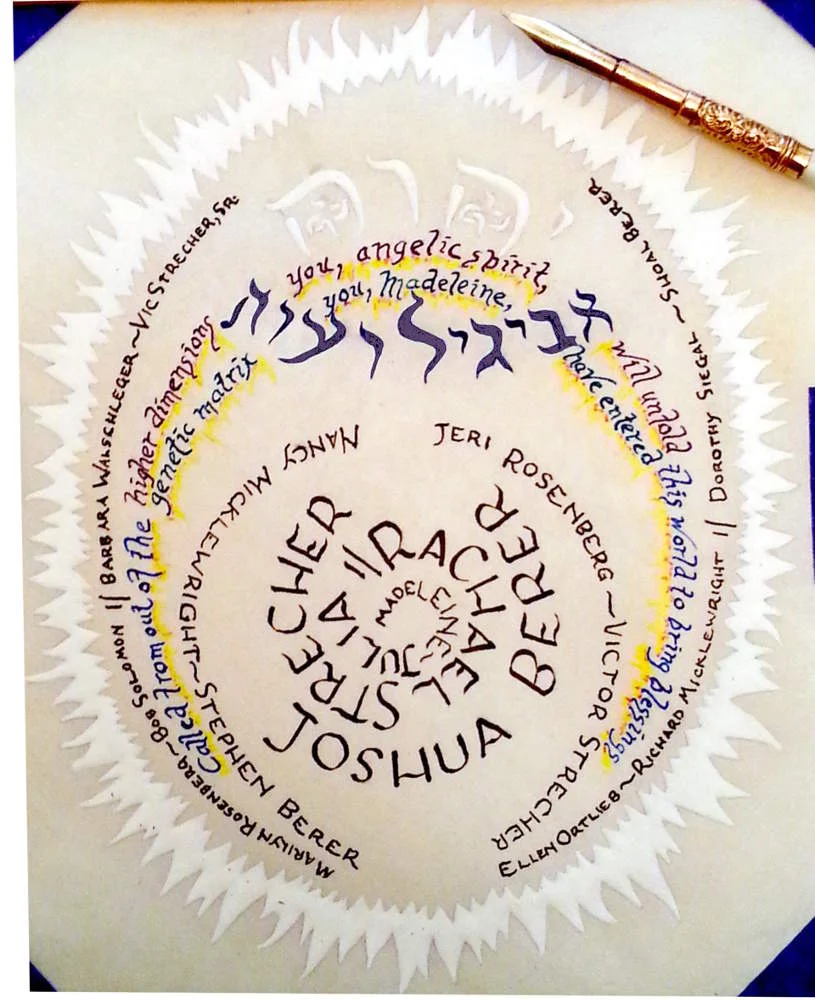 יהוה
Called from out of the higher dimensions you, angelic spirit, will unfold this world to bring blessings
genetic matrix you, Madeleine, have entered
אביגיל
MARILYN ROSENBERG~BOB SOLOMON || BARBARA WALSCHLEGER~VIC STRECHER, SR.
ELLEN ORTLIEB~RICHARD MICKLEWRIGHT || DOROTHY SIEGAL ~ SHOAL BERER
NANCY MICKLEWRIGHT~STEPHEN BERER
JERI ROSENBERG ~VICTOR STRECHER
MADELEINE~JULIA || RACHAEL STRECHER
JOSHUA BERER